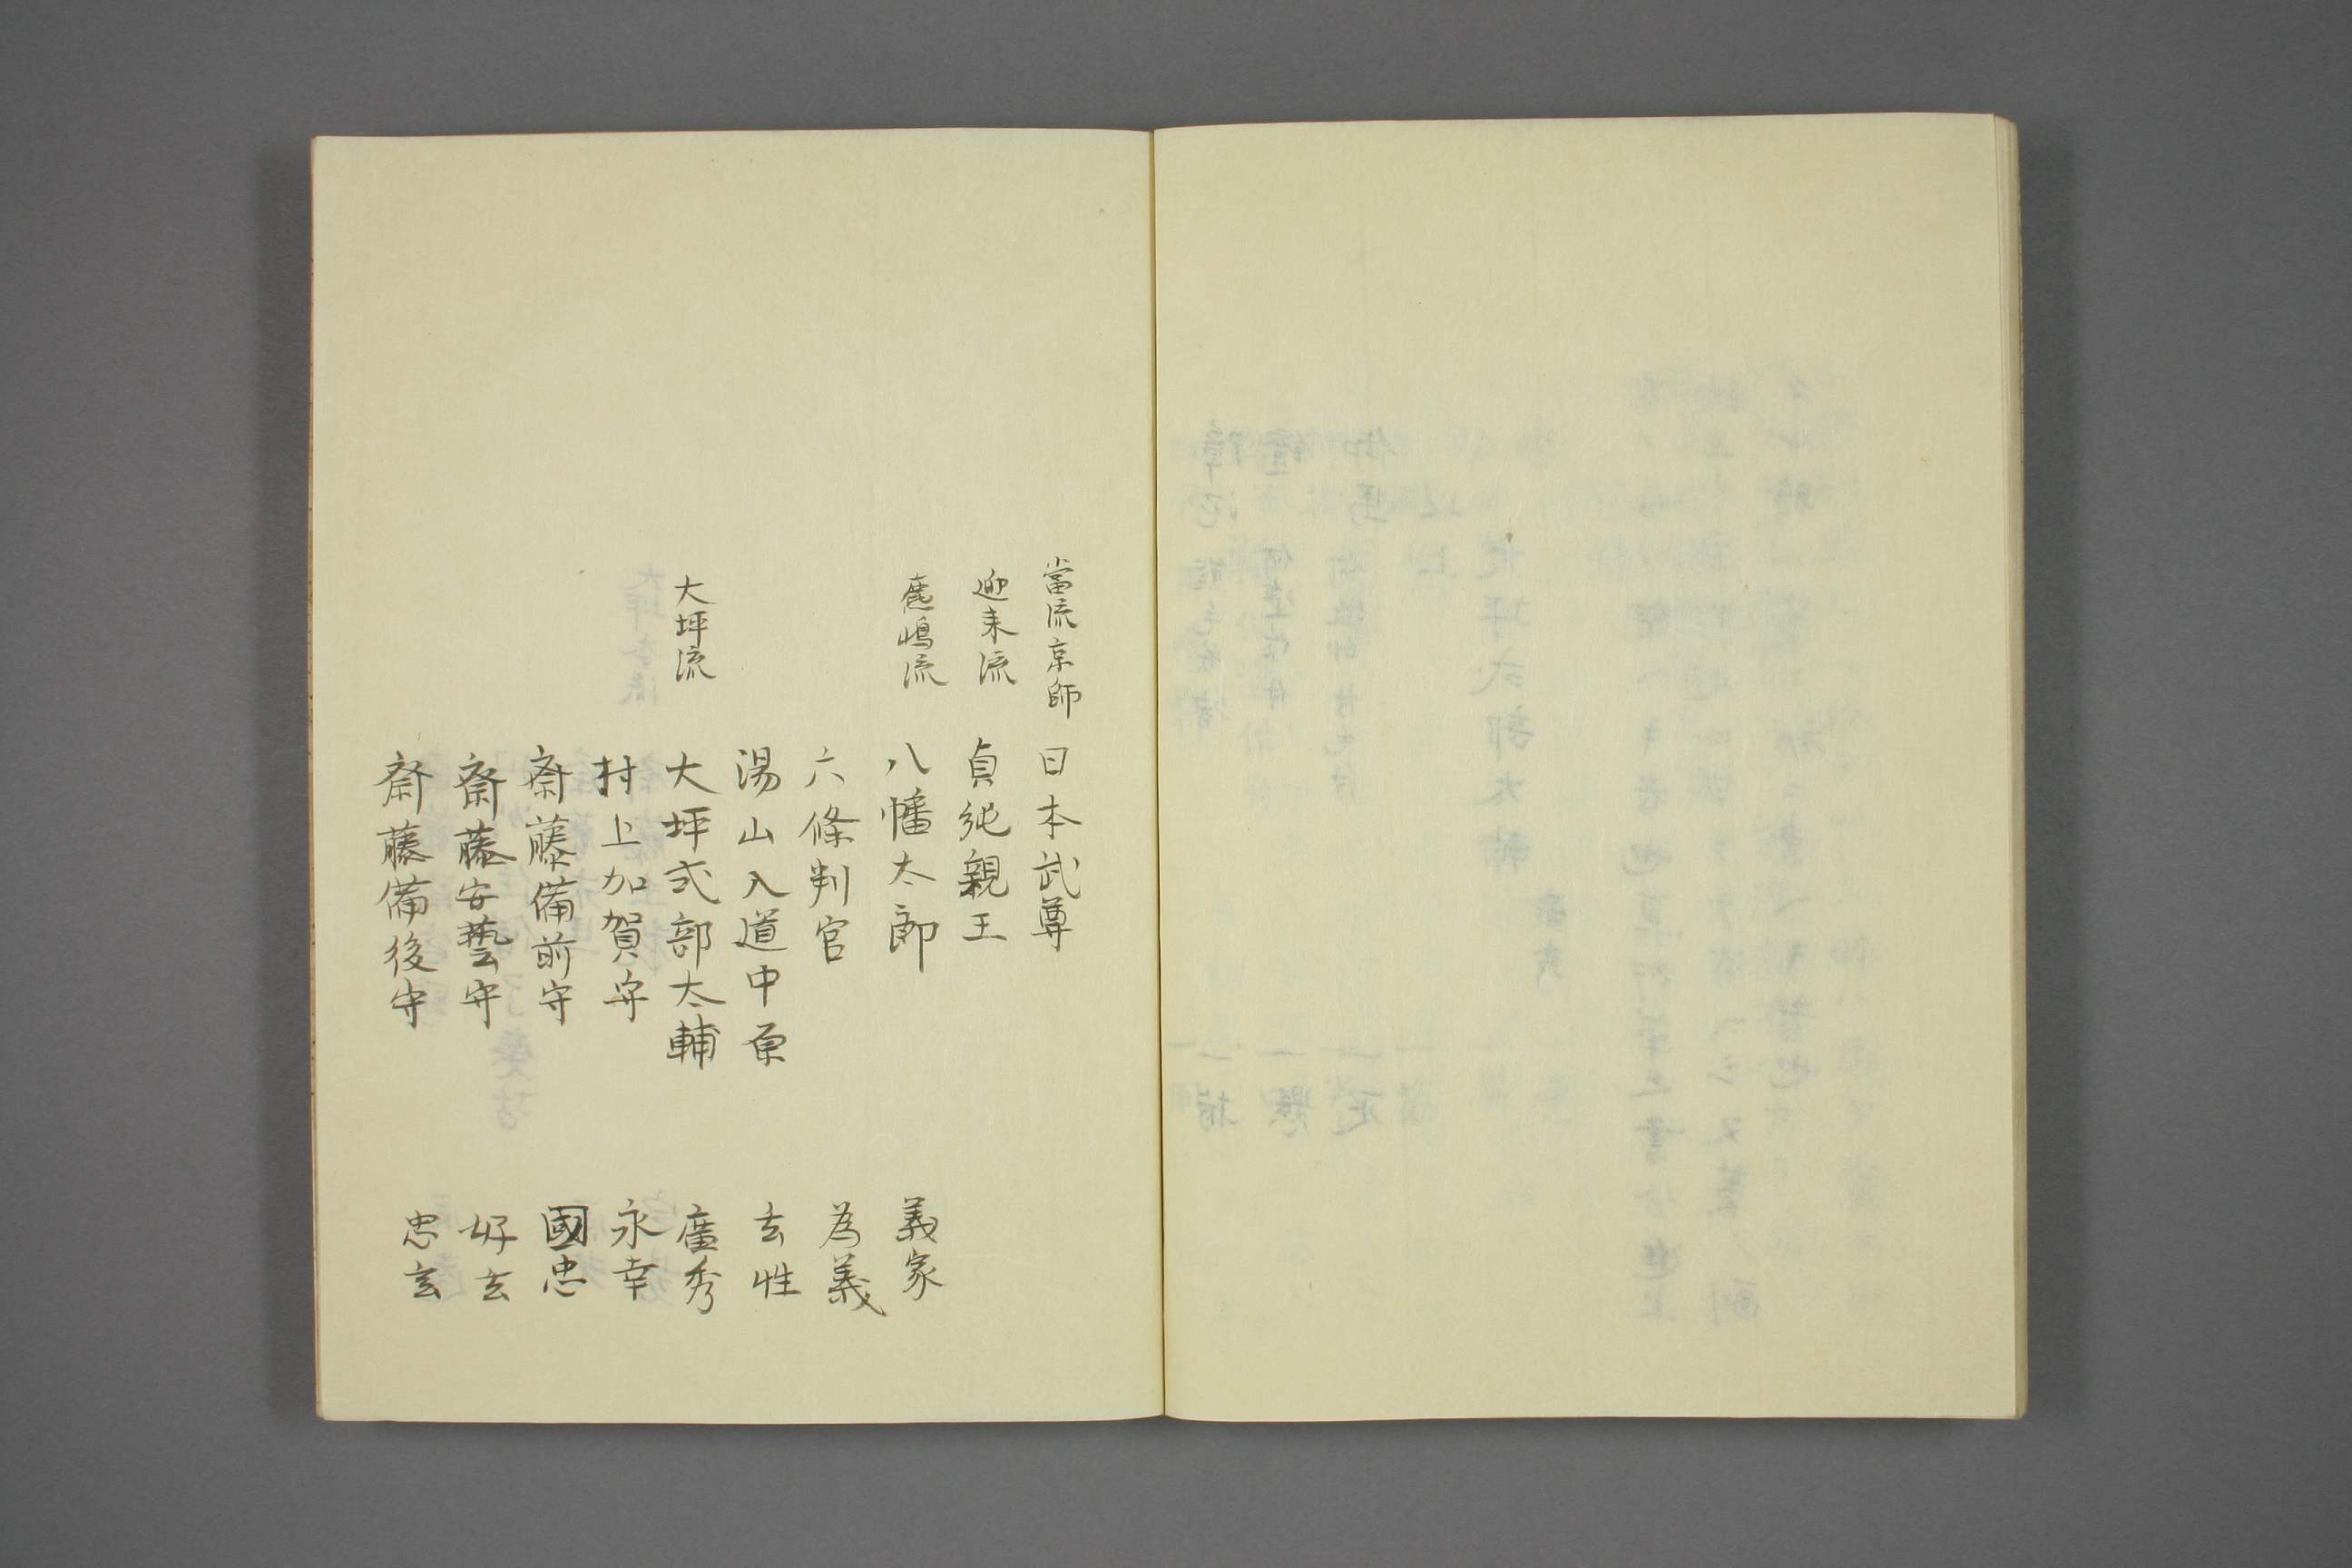 當流京師 日本武尊
迎来流 貞純親王
鹿嶋流 八幡太郎 義家
六條判官 為義
湯山入道中原 玄性
大坪流 大坪式部太輔 廣秀
村上加賀守 永幸
斎藤備前守 國忠
斎藤安藝守 好玄
斎藤備後守 忠玄